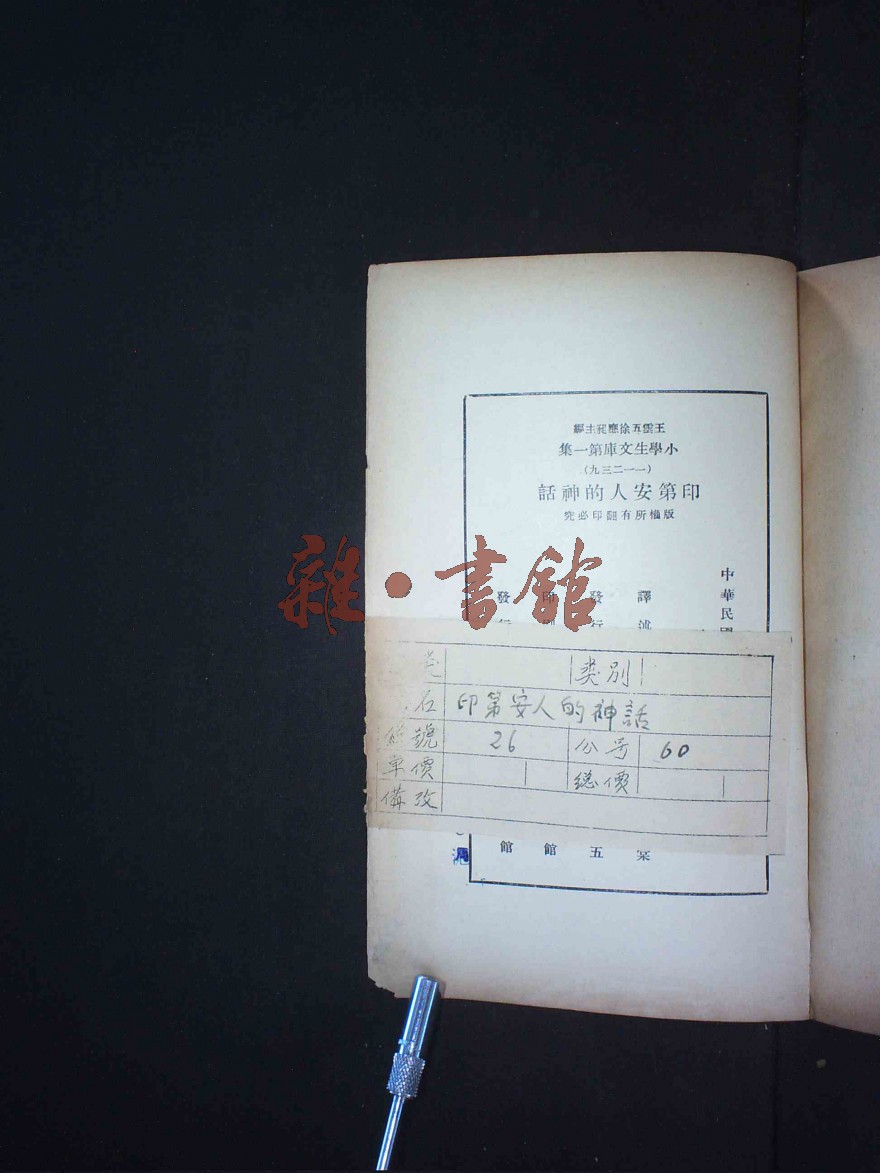 王雲五徐應昶主編
小學生文庫第一集
(一一二三九)
印第安人的神話
版權所有翻印必究
中華民國
譯述
發行
印
發行
雜·書館
类别
名 印第安人的神話
總號 26 公号 60
單價 總價
備攷
五
館
館